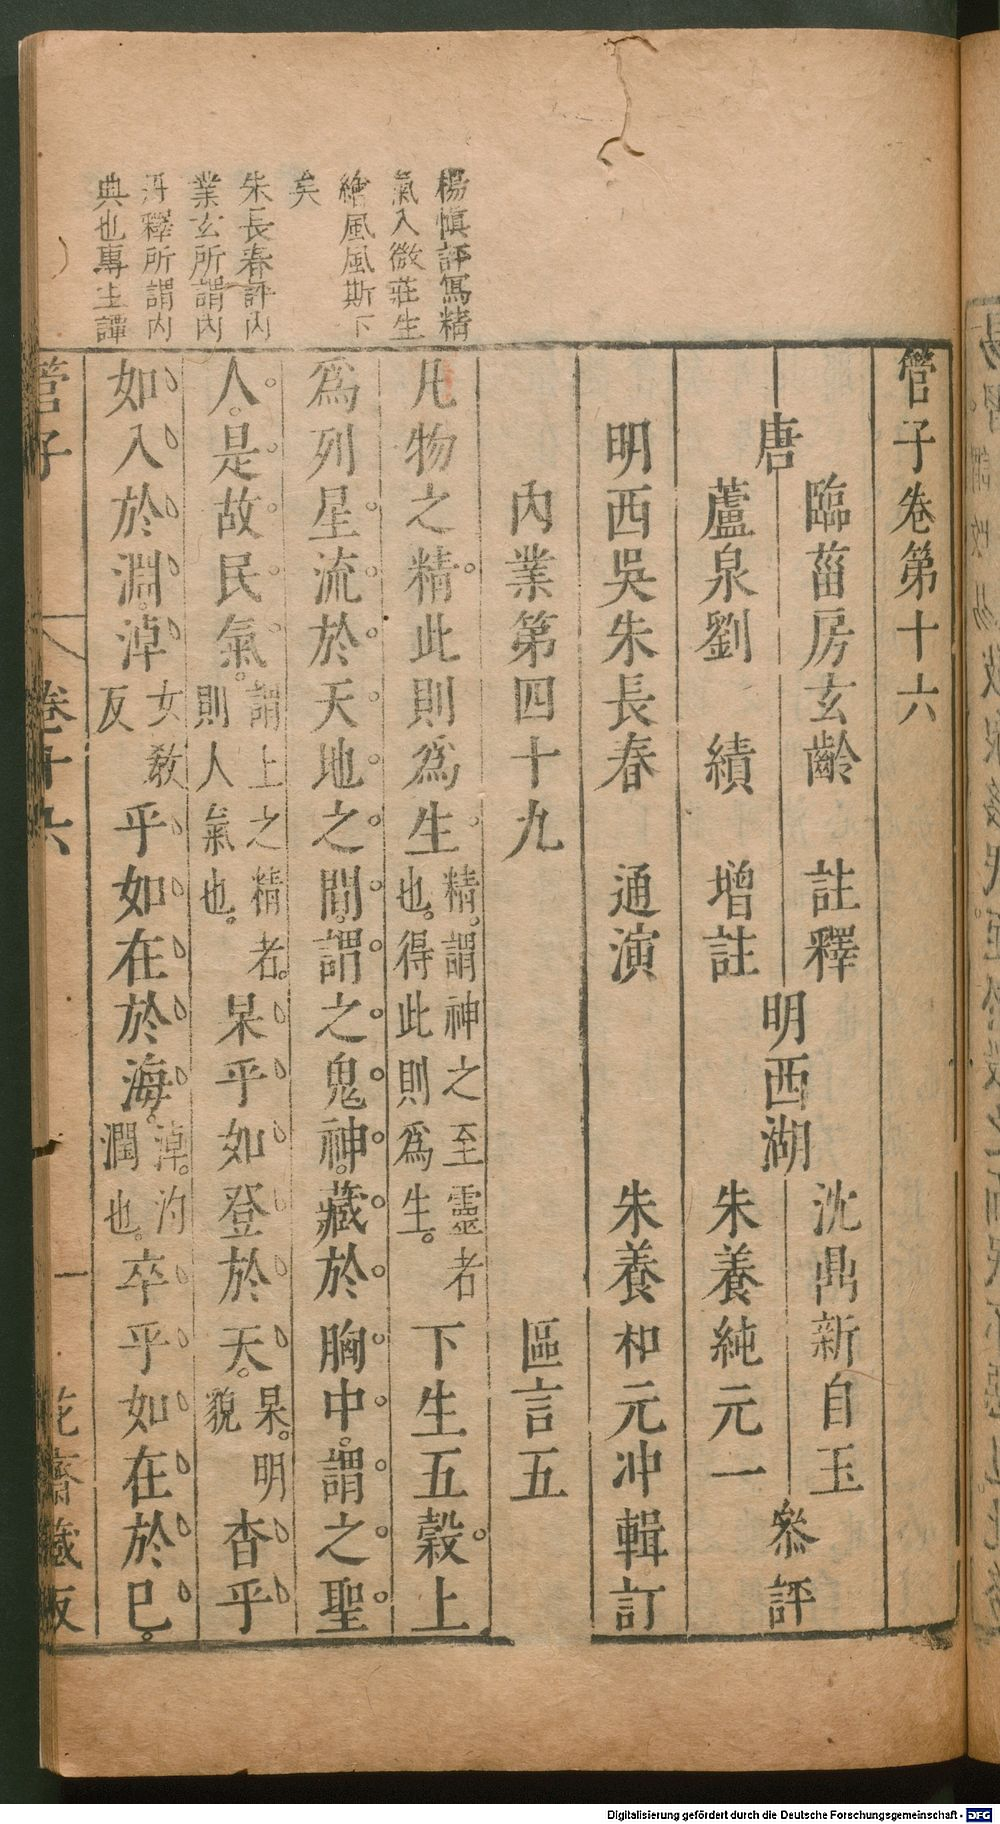 管子卷第十六
唐
臨菑房玄齡 註釋
蘆泉劉 績 增註
明西湖
沈鼎新自玉
朱養純元一
叅評
明西吳朱長春 通演 朱養和元冲輯訂
內業第四十九 區言五
凡物之精此則爲生
精。謂神之至靈者
也。得此則爲生。
下生五穀上
爲列星流於天地之間。謂之鬼神。藏於胸中。謂之聖
人。是故民氣。
謂上之精者。
則人氣也。
杲乎如登於天。
杲。明
貌
杳乎
如入於淵。淖
女教
反
乎如在於海。
淖。汋
潤也。
卒乎如在於已。
管子 卷十六 一 花齋藏板
楊愼評寫精
氣入微莊生
繪風風斯下
矣
朱長春評內
業玄所謂內
丹釋所謂內
典也專主譚
Digitalisierung gefördert durch die Deutsche Forschungsgemeinschaft - DFG